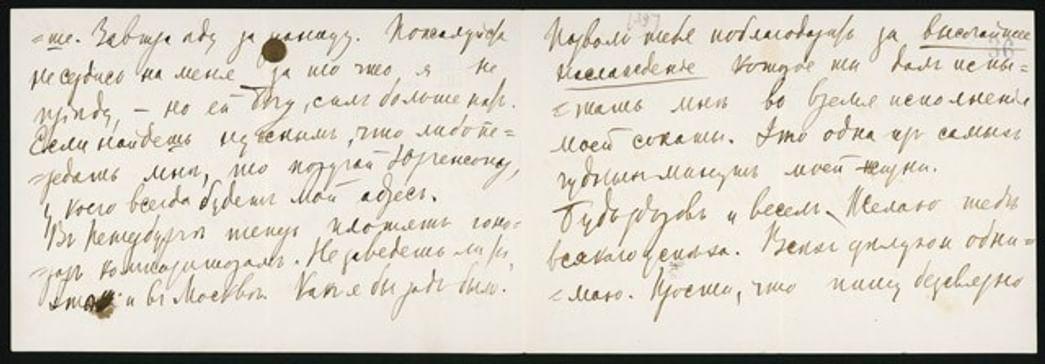 =ше. Завтра иду за границу. Пожалуйста
не сердись на меня за то что я не
приѣду, — но ей Богу, силъ больше нѣтъ.
Если найдешь нужнымъ, что либо пе=
=редать мнѣ, то поручай Юргенсону,
у кого всегда будетъ мой адресъ.
Въ Петербургѣ теперь платятъ гоно-
=раръ композиторамъ. Не заведешь ли
это и въ Москвѣ. Какъ я бы радъ былъ.
Позволь тебя поблагодарить за высочайшее
наслажденіе которое ты далъ испы=
=тать мнѣ во время исполненія
моей сюиты. Это одна изъ самыхъ
чудныхъ минутъ моей жизни.
Будь здоровъ и веселъ. Желаю тебѣ
всякаго успѣха.
=маю. Прости, что пишу безсвязно